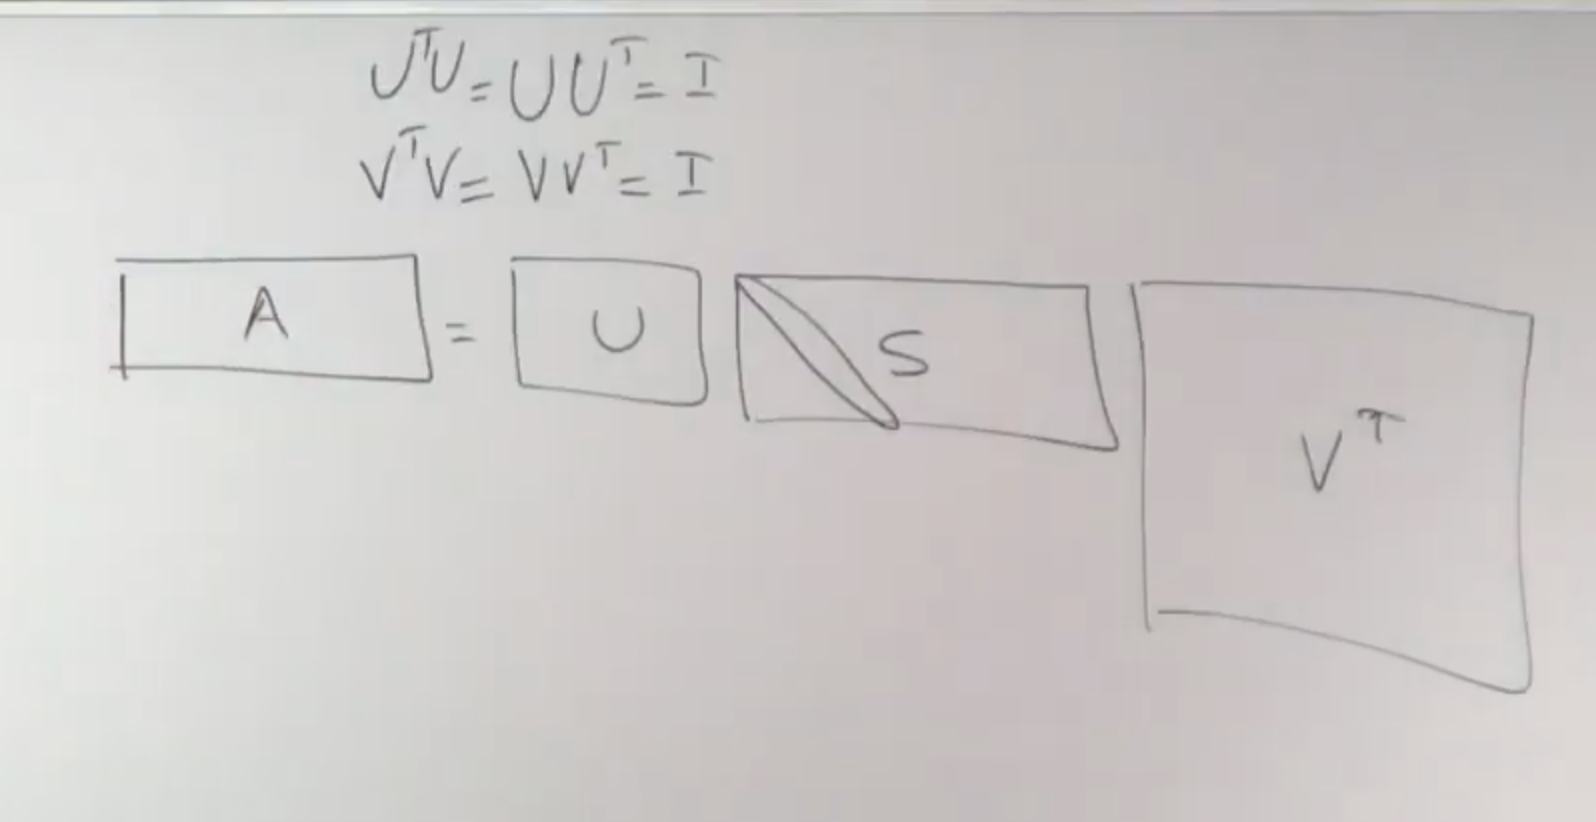 UᵀU = UUᵀ = I
VᵀV = VVᵀ = I
A = U S Vᵀ